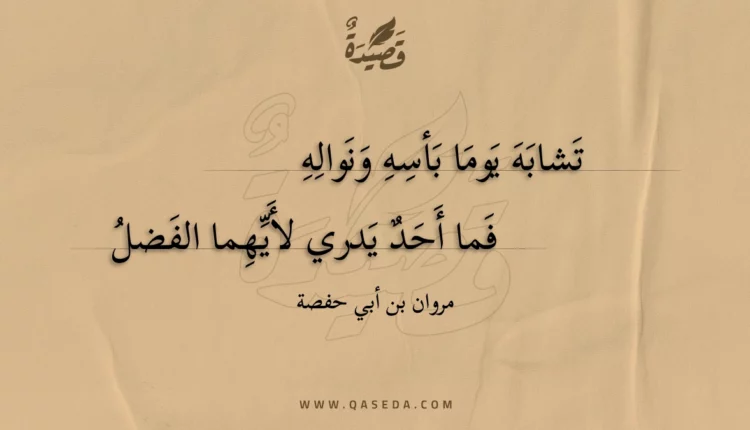 قَصِيدَةٌ
تَشابَهَ يَومَا بَأسِهِ وَنَوالِهِ
فَما أَحَدٌ يَدري لأَيِّهِما الفَضلُ
مروان بن أبي حفصة
WWW.QASEDA.COM